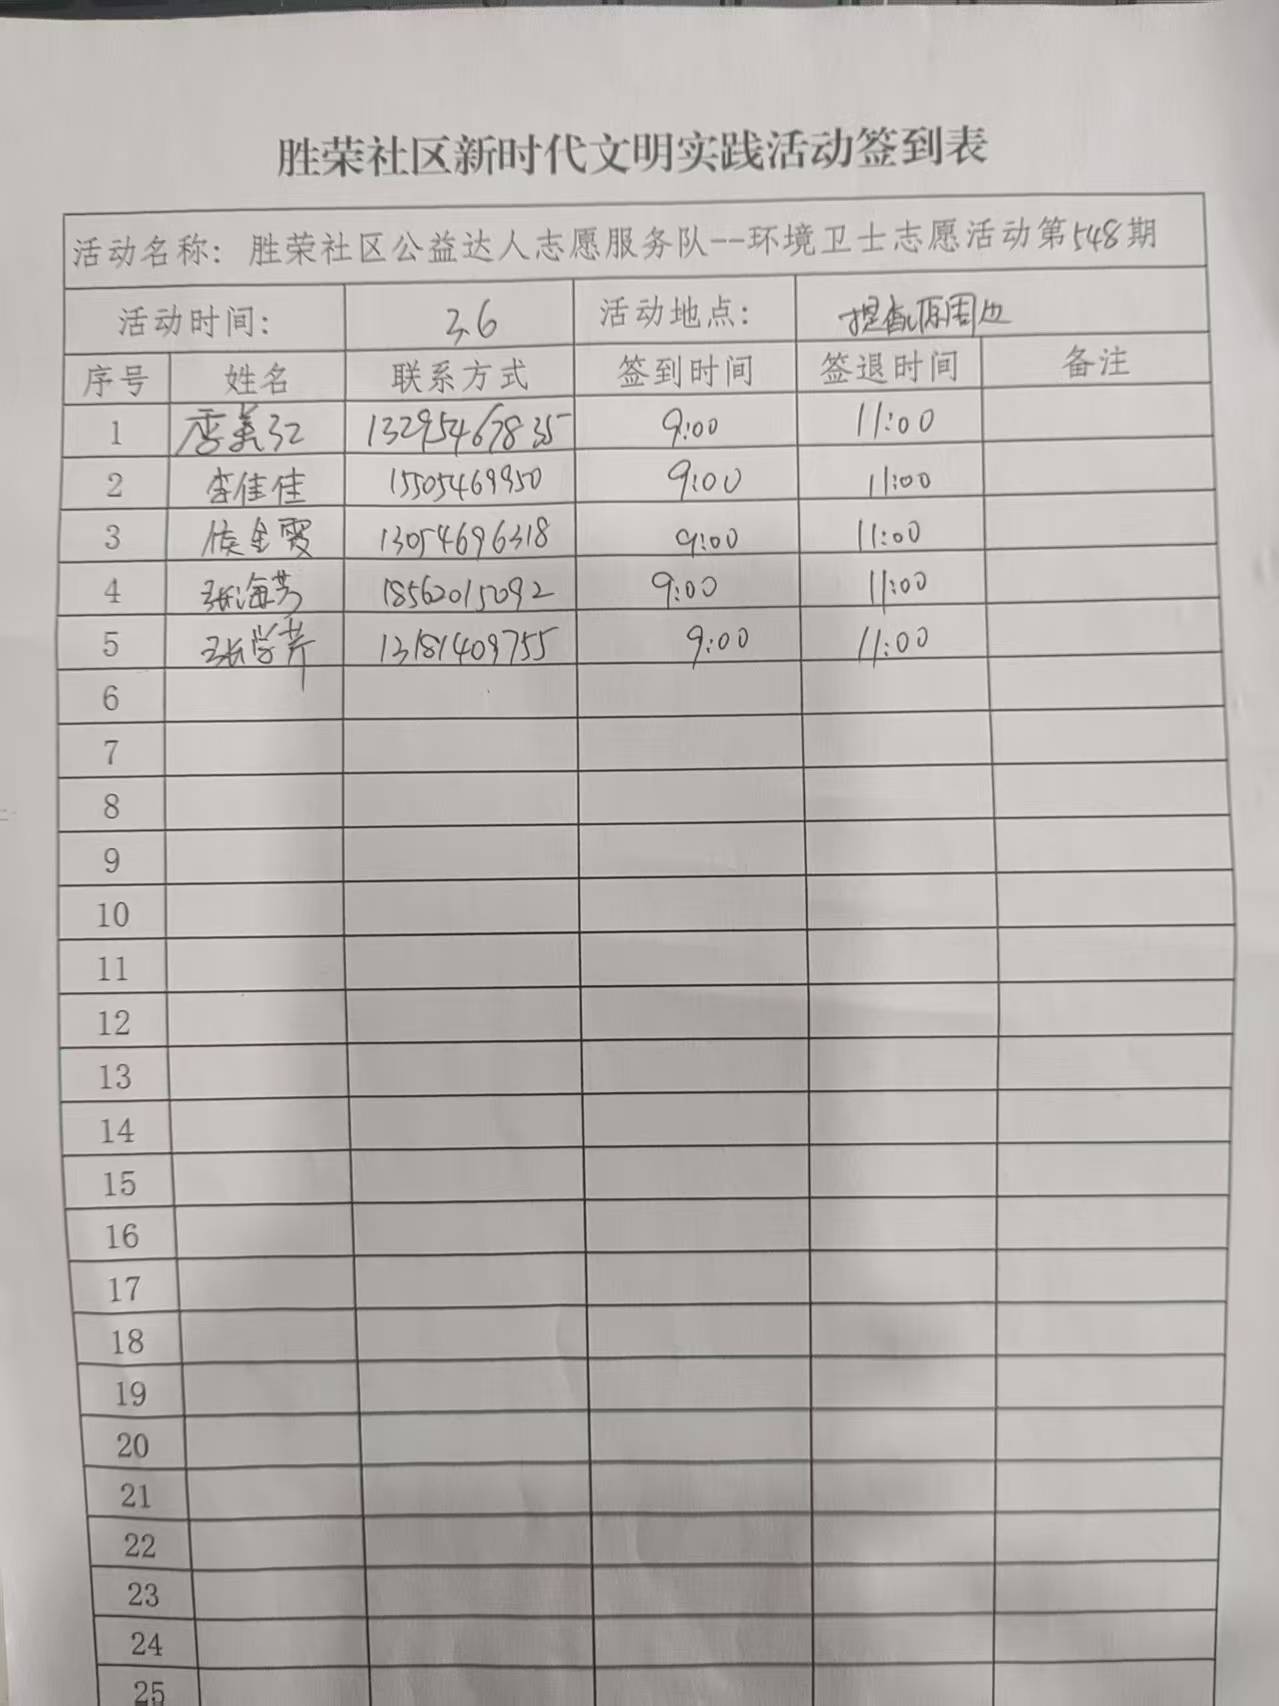 胜荣社区新时代文明实践活动签到表
活动名称：胜荣社区公益达人志愿服务队--环境卫士志愿活动第548期
活动时间： 3.6 活动地点： 周边
序号 姓名 联系方式 签到时间 签退时间 备注
1 季美红 13295467835 9:00 11:00
2 李佳佳 15505469950 9:00 11:00
3 侯金霞 13054696318 9:00 11:00
4 张海芳 18562015092 9:00 11:00
5 张学芹 13181409755 9:00 11:00
6
7
8
9
10
11
12
13
14
15
16
17
18
19
20
21
22
23
24
25